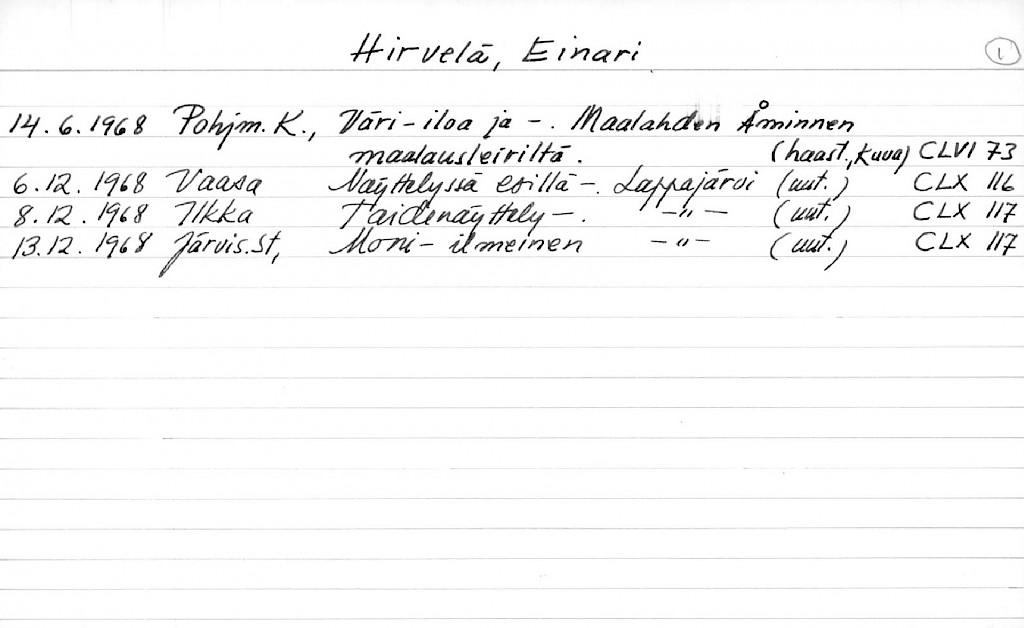 Hirvelä, Einari 1
14.6.1968 Pohjm. K., Väri-iloa ja -. Maalahden Åminnen
maalausleiriltä. (haast., kuva) CLVI 73
6.12.1968 Vaasa Näyttelyssä esillä -. Lappajärvi (uut.) CLX 116
8.12.1968 Ilkka Taidenäyttely -. -"- (uut.) CLX 117
13.12.1968 Järvis.st, Moni-ilmeinen -"- (uut.) CLX 117